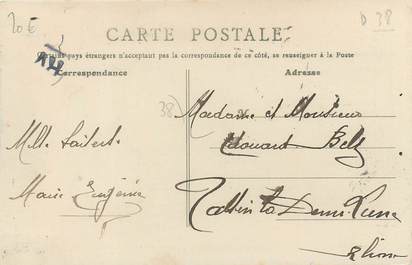 20€
D 38
CARTE POSTALE
Certains pays étrangers n'acceptant pas la correspondance de ce côté, se renseigner à la Poste
Correspondance
Adresse
38)
Madame et Monsieur
Edouard
Marie Eugénie
Tassin la Demi-Lune
Rhône